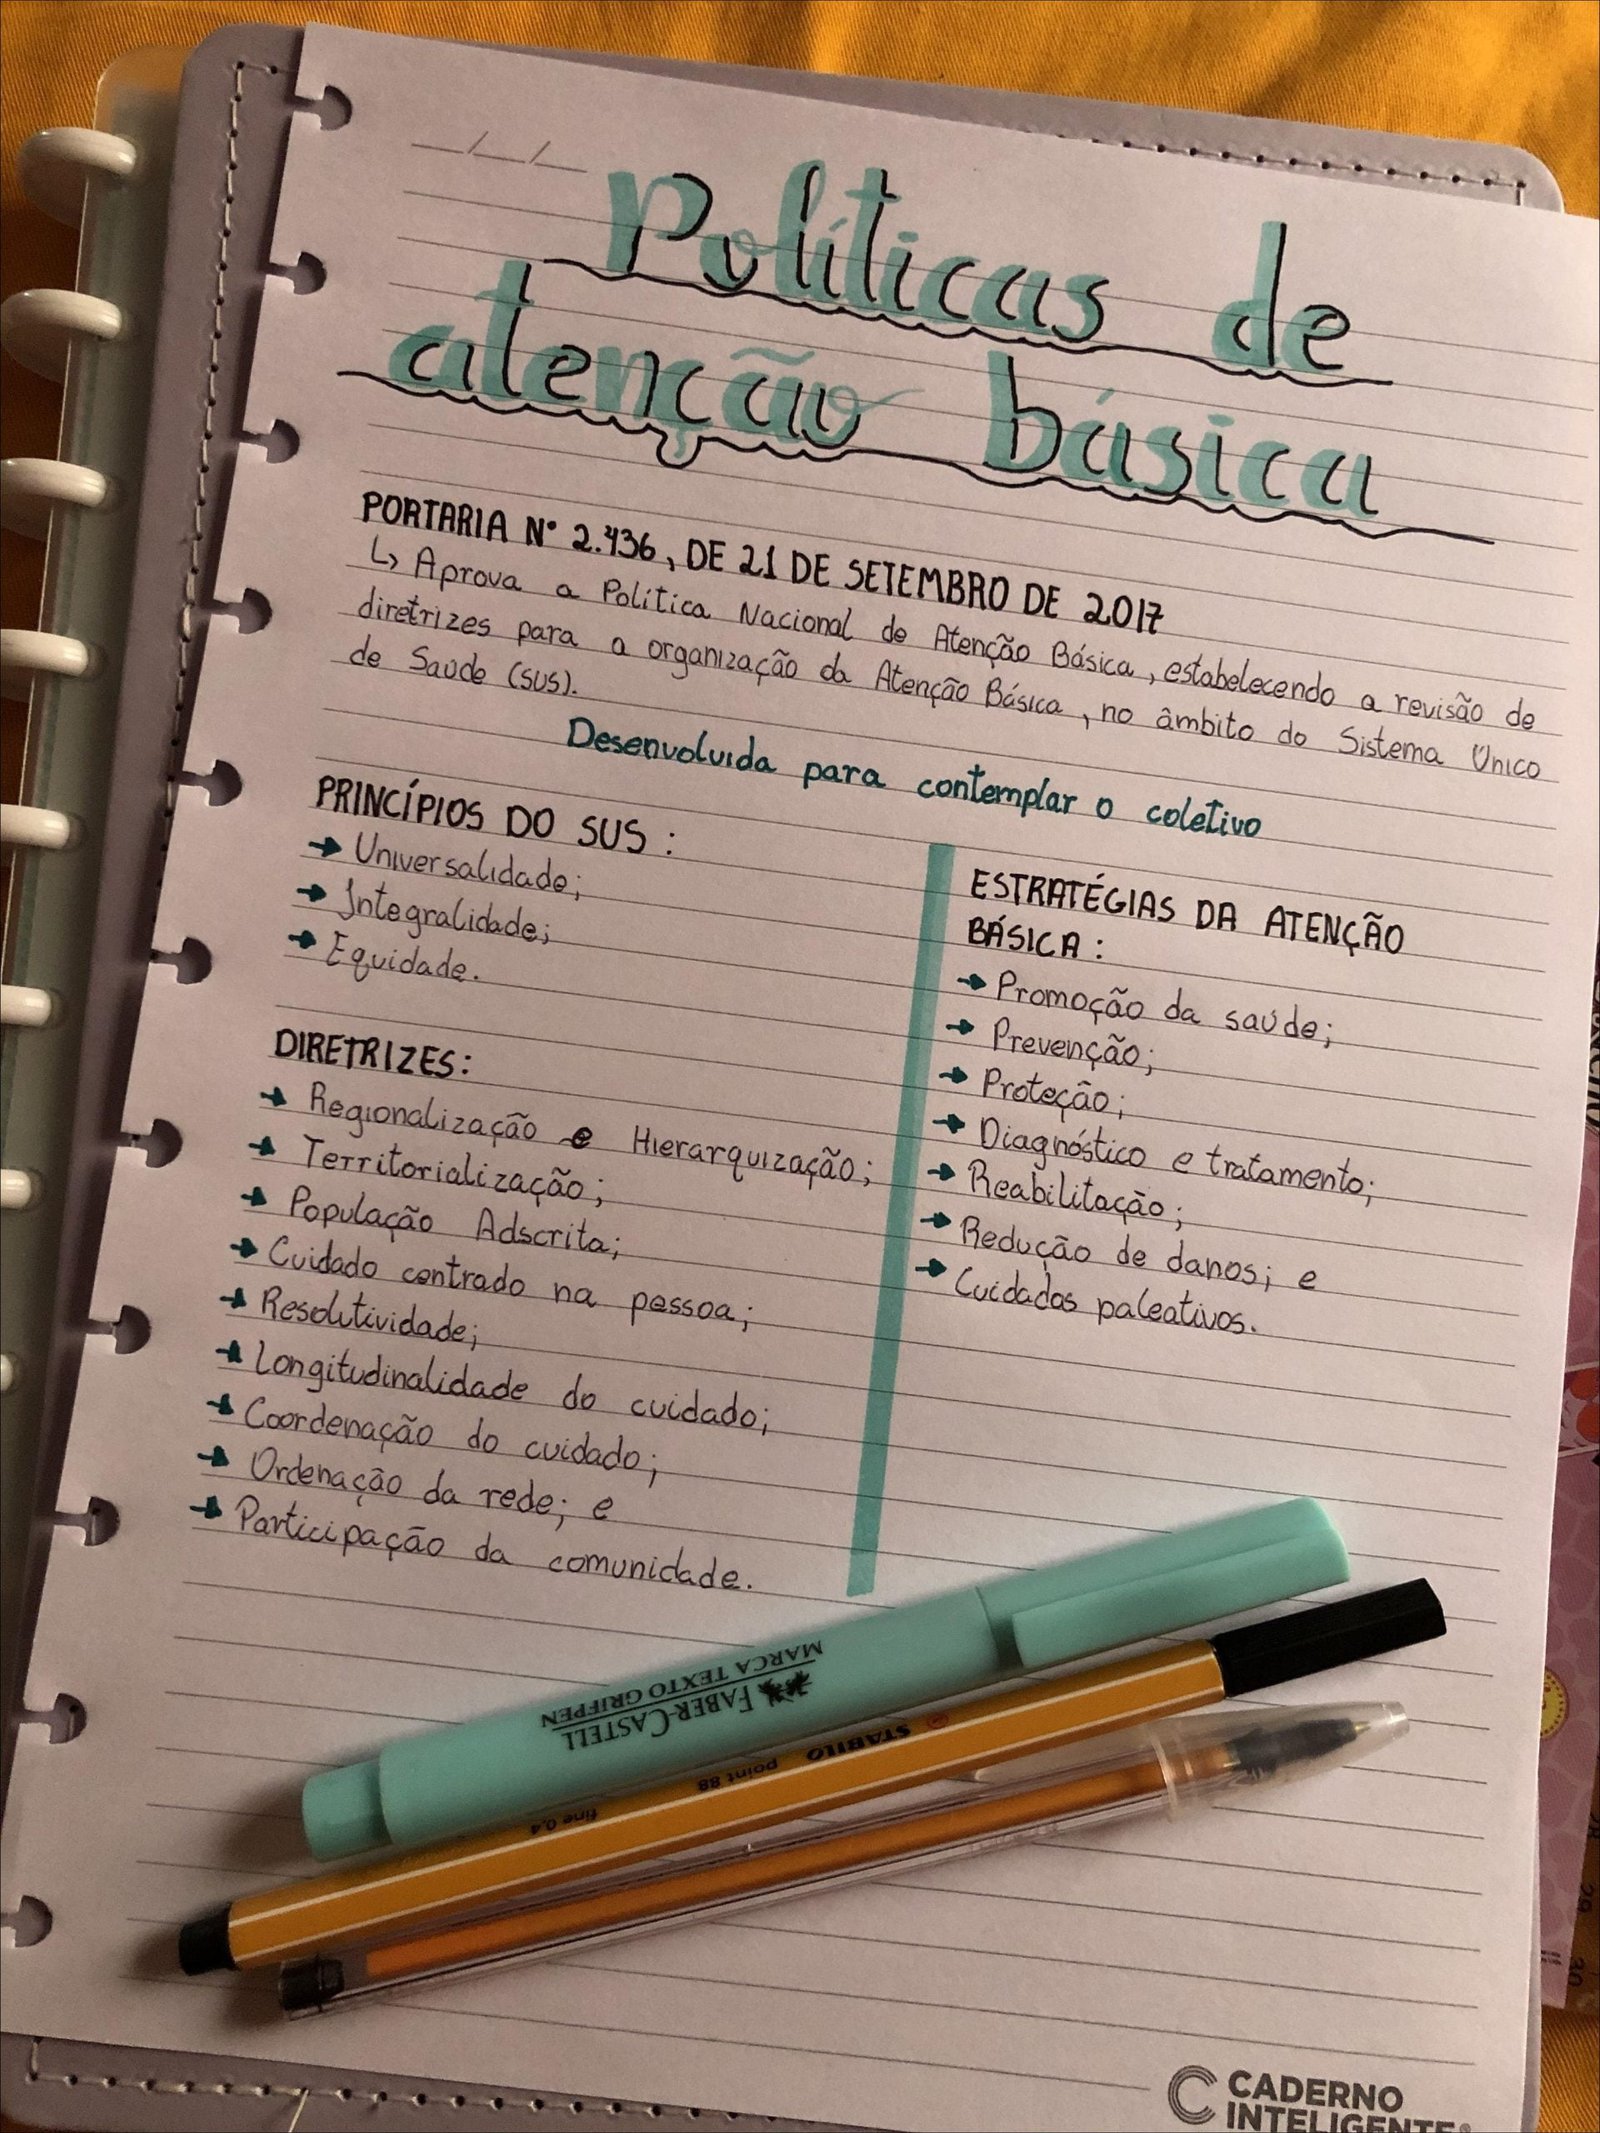 Políticas de
atenção básica
PORTARIA Nº 2.436, DE 21 DE SETEMBRO DE 2017
↳ Aprova a Política Nacional de Atenção Básica, estabelecendo a revisão de
diretrizes para a organização da Atenção Básica, no âmbito do Sistema Único
de Saúde (SUS).
Desenvolvida para contemplar o coletivo
PRINCÍPIOS DO SUS:
→ Universalidade;
→ Integralidade;
→ Equidade.
DIRETRIZES:
→ Regionalização e Hierarquização;
→ Territorialização;
→ População Adscrita;
→ Cuidado centrado na pessoa;
→ Resolutividade;
→ Longitudinalidade do cuidado;
→ Coordenação do cuidado;
→ Ordenação da rede; e
→ Participação da comunidade.
ESTRATÉGIAS DA ATENÇÃO
BÁSICA:
→ Promoção da saúde;
→ Prevenção;
→ Proteção;
→ Diagnóstico e tratamento;
→ Reabilitação;
→ Redução de danos; e
→ Cuidados paleativos.
FABER-CASTELL
MARCA TEXTO GRIFPEN
STABILO point 88 fine 0,4
CADERNO
INTELIGENTE®
29
30